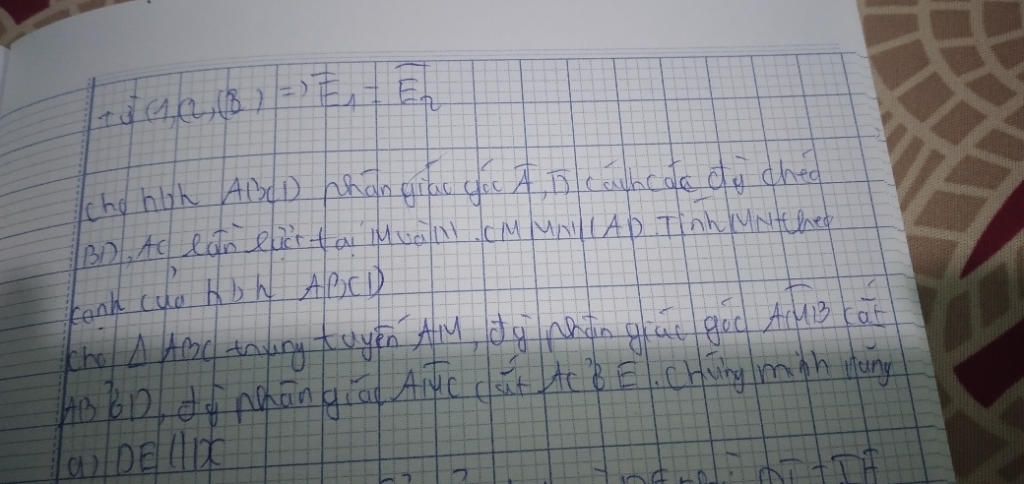 => E₁ = E₂
cho hbh ABCD phân giác góc A, D cắt các đg chéo
BD, AC lần lượt tại M và N. CM MN // AD. Tính MN theo
cạnh của hbh ABCD
cho Δ ABC trung tuyến AM, đg phân giác góc AMB cắt
AB ở D, đg phân giác AMC cắt AC ở E. chứng minh rằng
a) DE //